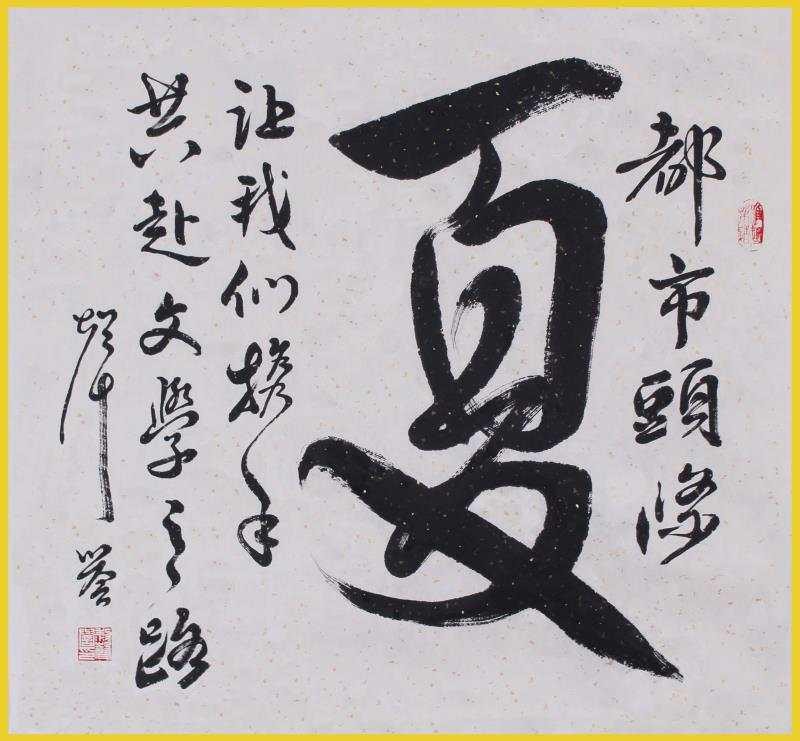 都市頭條
夏
让我们携手
共赴文學之路